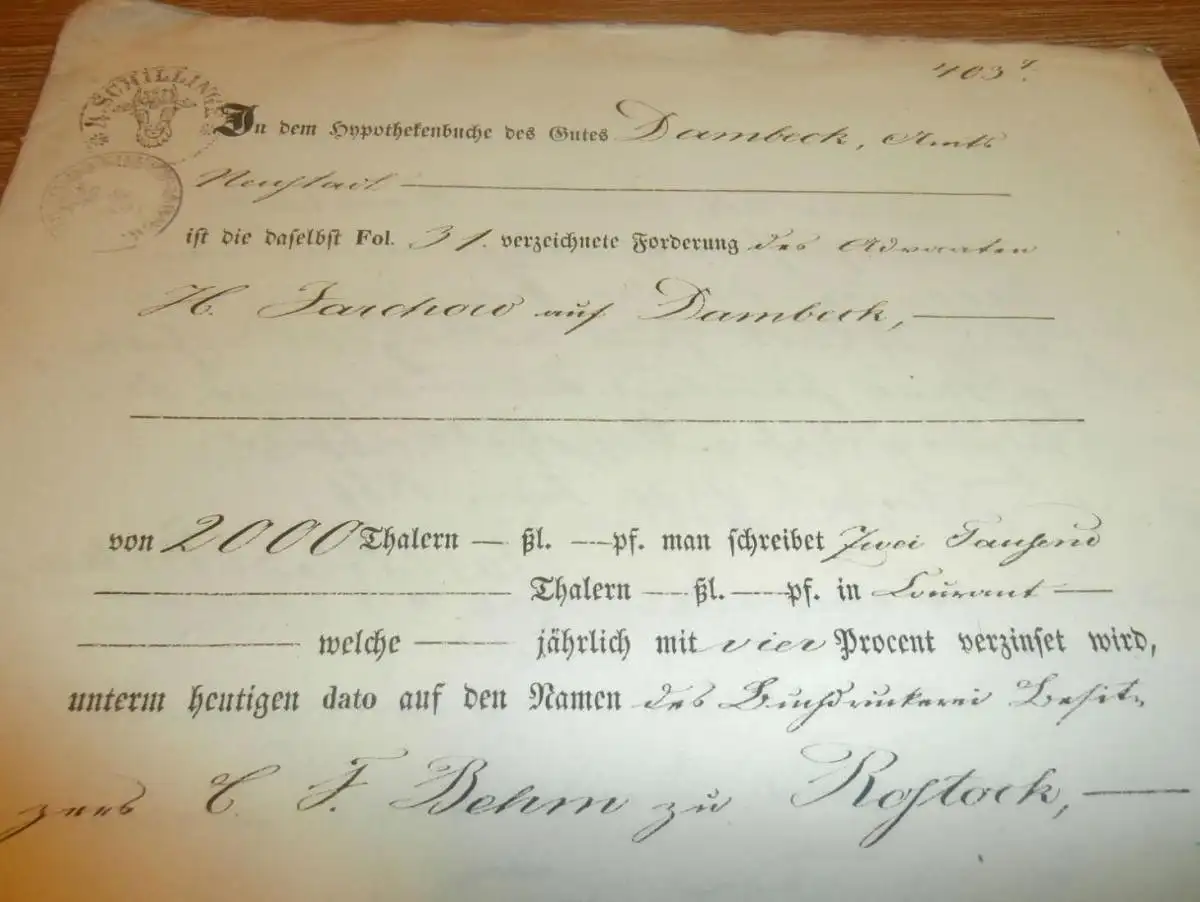 403
4. SCHILLINGE
In dem Hypothekenbuche des Gutes Dambeck, Amts
Neustadt
ist die daselbst Fol. 31. verzeichnete Forderung des Advocaten
H. Jarchow auf Dambeck,
von 2000 Thalern — ßl. — pf. man schreibet Zwei Tausend
Thalern — ßl. — pf. in Courant —
— welche — jährlich mit vier Procent verzinset wird,
unterm heutigen dato auf den Namen des Buchdruckerei Besit-
zers C. F. Behm zu Rostock, —